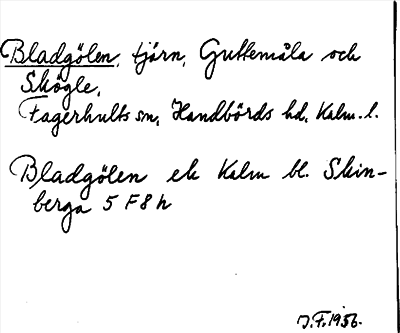 Bladgölen, tjärn, Guttemåla och
Skögle,
Fagerhults sn, Handbörds hd, Kalm. l.
Bladgölen ek Kalm bl. Skin-
berga 5 F 8 h
J.F. 1956.